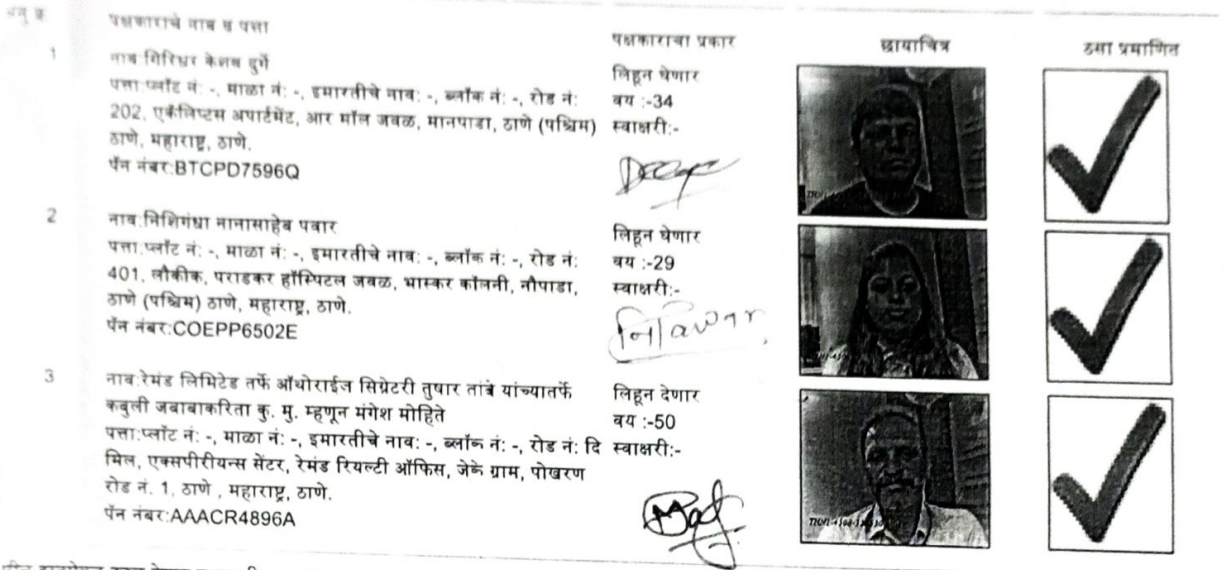 अनु क्र पक्षकाराचे नाव व पत्ता पक्षकाराचा प्रकार छायाचित्र ठसा प्रमाणित
1 नाव:गिरिधर केशव दुर्गे
पत्ता:प्लॉट नं: -, माळा नं: -, इमारतीचे नाव: -, ब्लॉक नं: -, रोड नं:
202, एकॅलिप्टस अपार्टमेंट, आर मॉल जवळ, मानपाडा, ठाणे (पश्चिम)
ठाणे, महाराष्ट्र, ठाणे.
पॅन नंबर:BTCPD7596Q
लिहून घेणार
वय :-34
स्वाक्षरी:-
2 नाव:निशिगंधा नानासाहेब पवार
पत्ता:प्लॉट नं: -, माळा नं: -, इमारतीचे नाव: -, ब्लॉक नं: -, रोड नं:
401, लौकीक, पराडकर हॉस्पिटल जवळ, भास्कर कॉलनी, नौपाडा,
ठाणे (पश्चिम) ठाणे, महाराष्ट्र, ठाणे.
पॅन नंबर:COEPP6502E
लिहून घेणार
वय :-29
स्वाक्षरी:-
3 नाव:रेमंड लिमिटेड तर्फे ऑथोराईज सिग्नेटरी तुषार तांबे यांच्यातर्फे
कबुली जबाबाकरिता कु. मु. म्हणून मंगेश मोहिते
पत्ता:प्लॉट नं: -, माळा नं: -, इमारतीचे नाव: -, ब्लॉक नं: -, रोड नं: दि
मिल, एक्सपीरीयन्स सेंटर, रेमंड रियल्टी ऑफिस, जेके ग्राम, पोखरण
रोड नं. 1, ठाणे , महाराष्ट्र, ठाणे.
पॅन नंबर:AAACR4896A
लिहून देणार
वय :-50
स्वाक्षरी:-